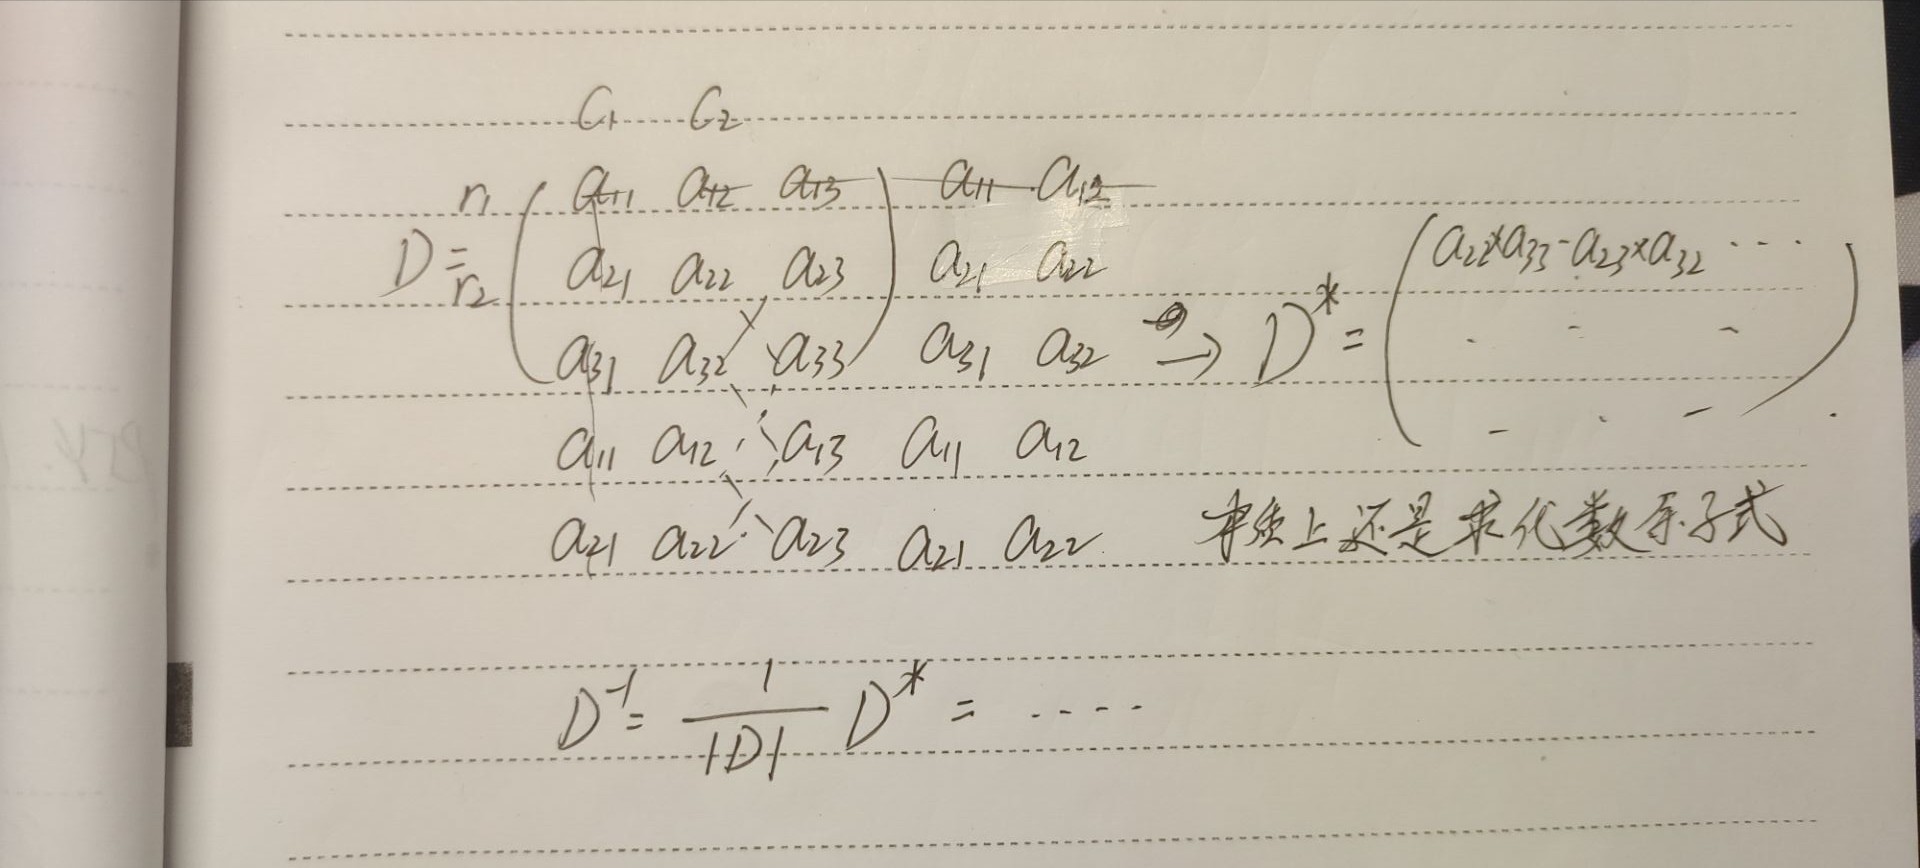 C₁ C₂
r₁ ( a₁₁ a₁₂ a₁₃ ) a₁₁ a₁₂
D = r₂ a₂₁ a₂₂ a₂₃ a₂₁ a₂₂
a₃₁ a₃₂ a₃₃ a₃₁ a₃₂ → D* = ( a₂₂×a₃₃-a₂₃×a₃₂ ... )
a₁₁ a₁₂ a₁₃ a₁₁ a₁₂
a₂₁ a₂₂ a₂₃ a₂₁ a₂₂ 本质上还是求代数余子式
D⁻¹ = 1/|D| D* = ....